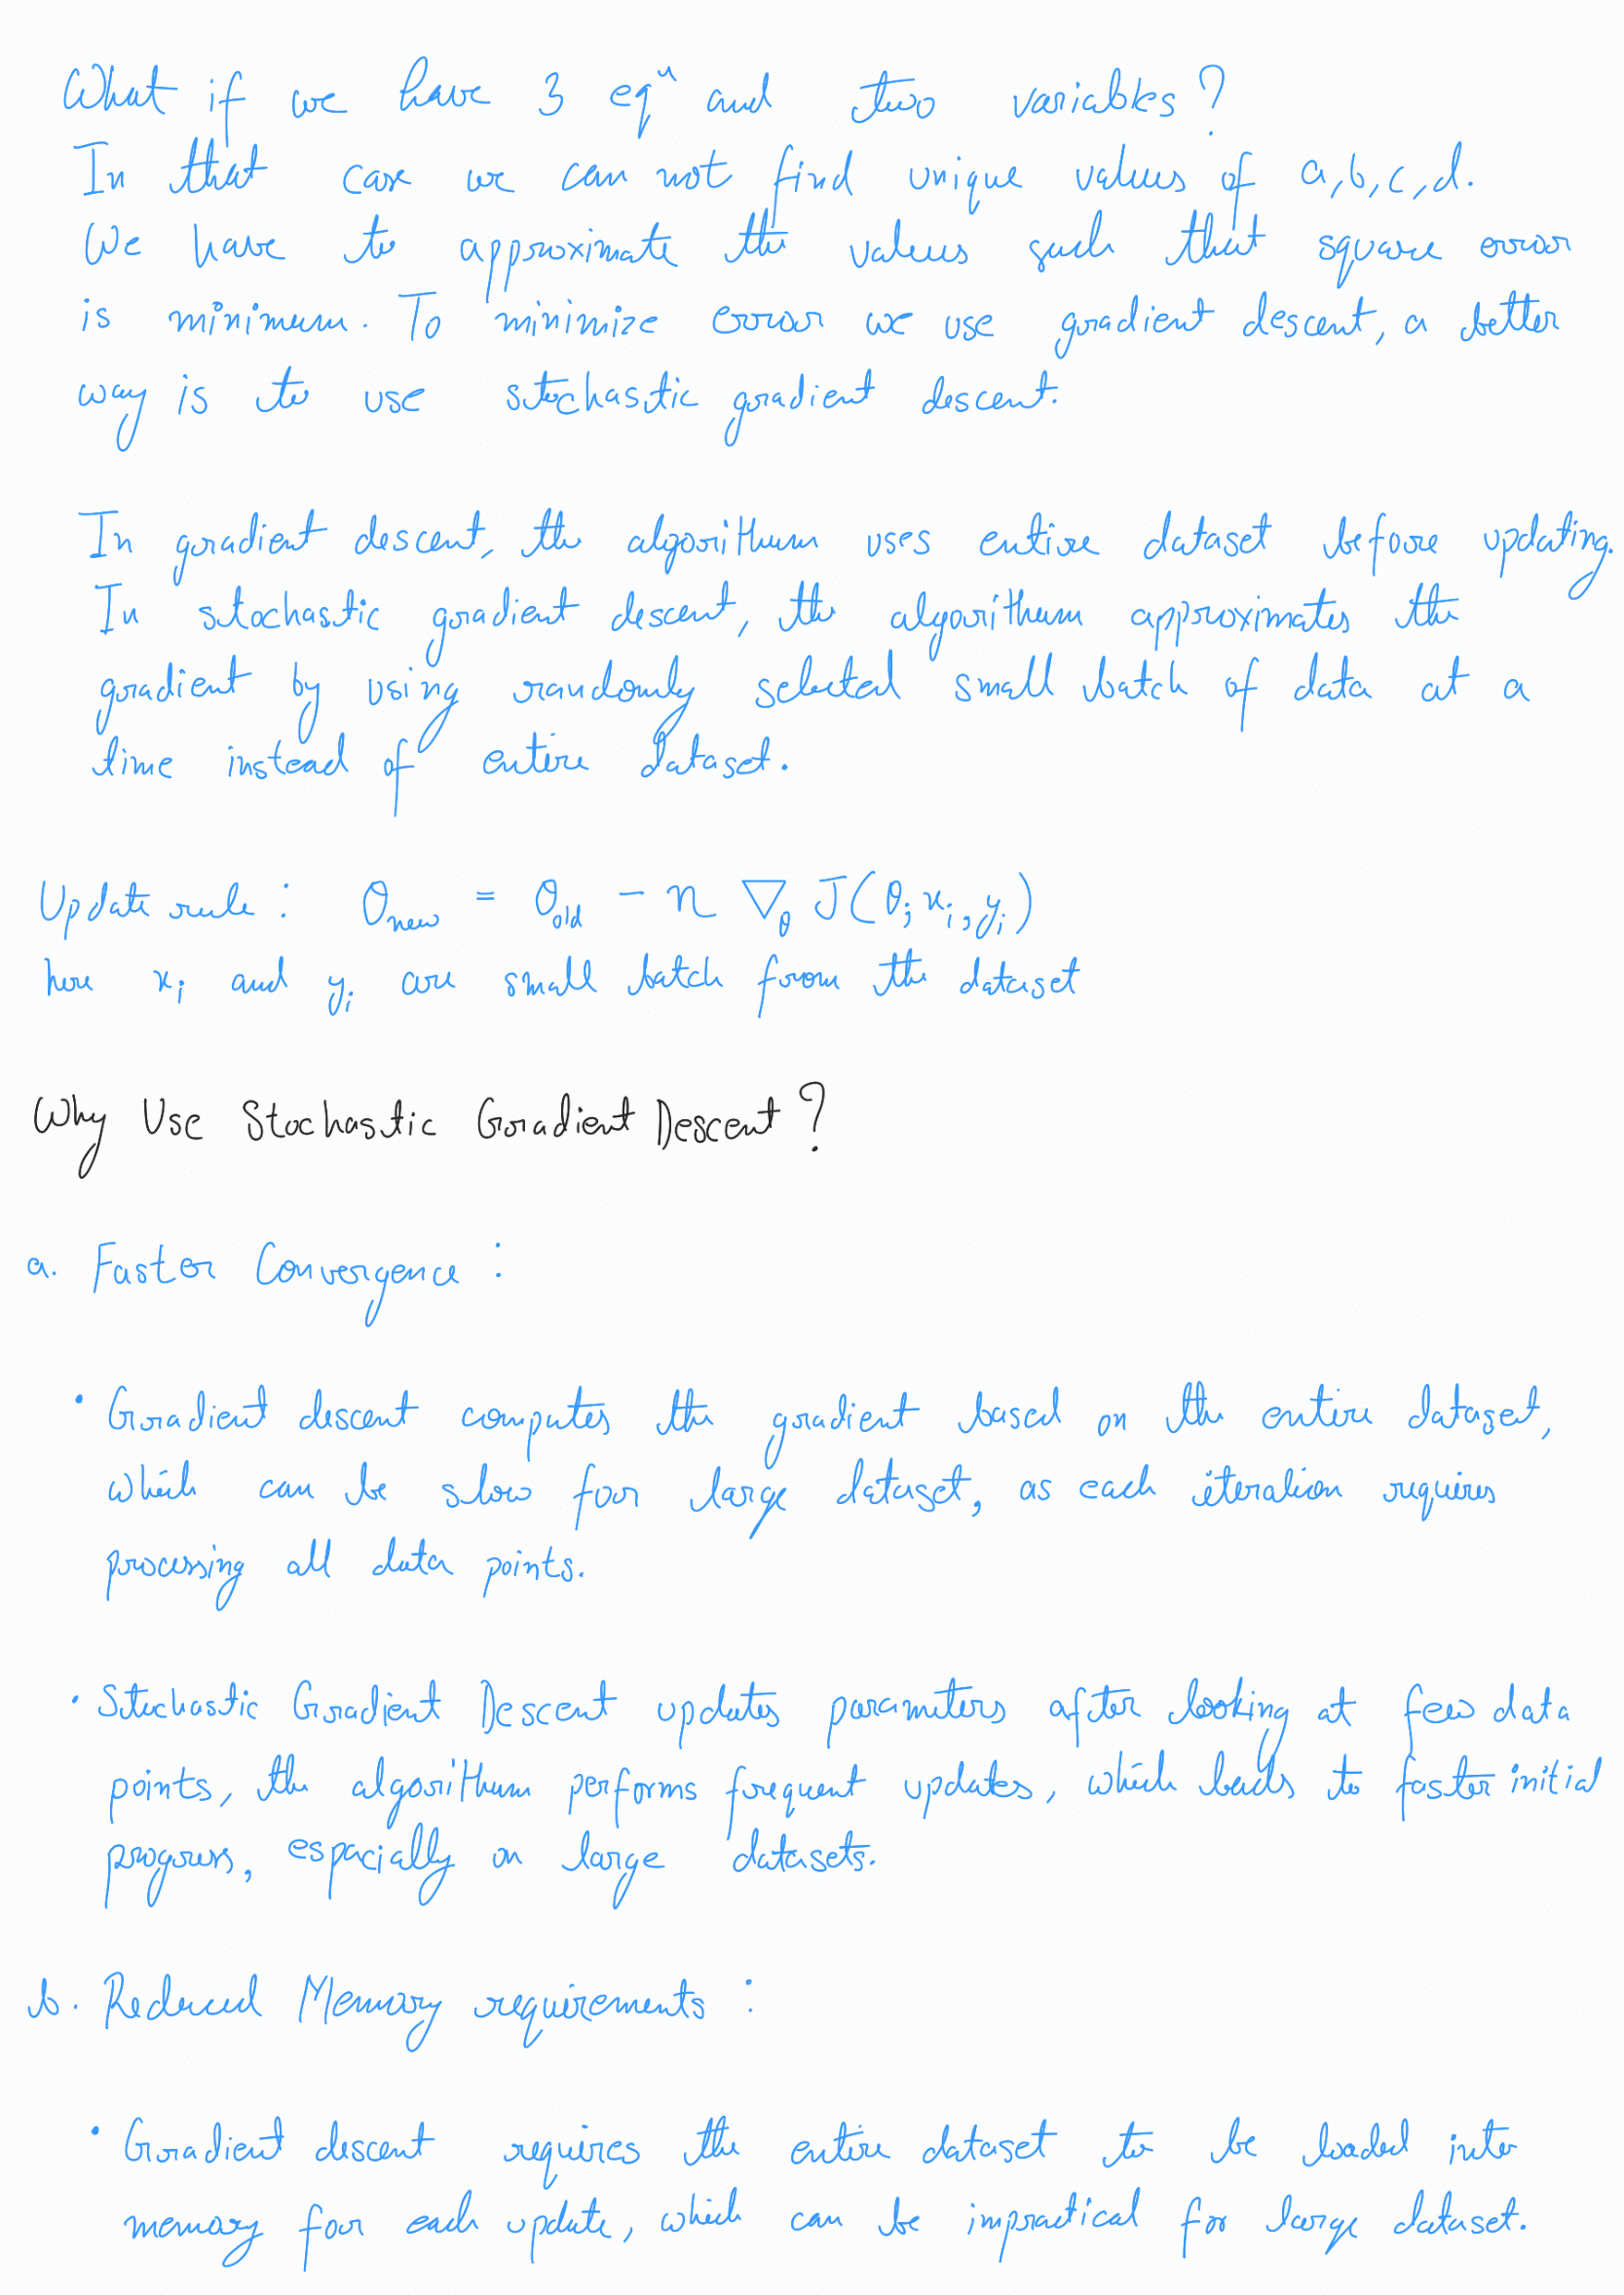 What if we have 3 eqⁿ and two variables?
In that case we can not find unique values of a,b,c,d.
We have to approximate the values such that square error
is minimum. To minimize error we use gradient descent, a better
way is to use stochastic gradient descent.
In gradient descent, the algorithm uses entire dataset before updating.
In stochastic gradient descent, the algorithm approximates the
gradient by using randomly selected small batch of data at a
time instead of entire dataset.
Update rule : θnew = θold - η ∇θ J(θ; xi, yi)
here xi and yi are small batch from the dataset
Why Use Stochastic Gradient Descent?
a. Faster Convergence :
• Gradient descent computes the gradient based on the entire dataset,
which can be slow for large dataset, as each iteration requires
processing all data points.
• Stochastic Gradient Descent updates parameters after looking at few data
points, the algorithm performs frequent updates, which leads to faster initial
progress, espacially on large datasets.
b. Reduced Memory requirements :
• Gradient descent requires the entire dataset to be loaded into
memory for each update, which can be impractical for large dataset.